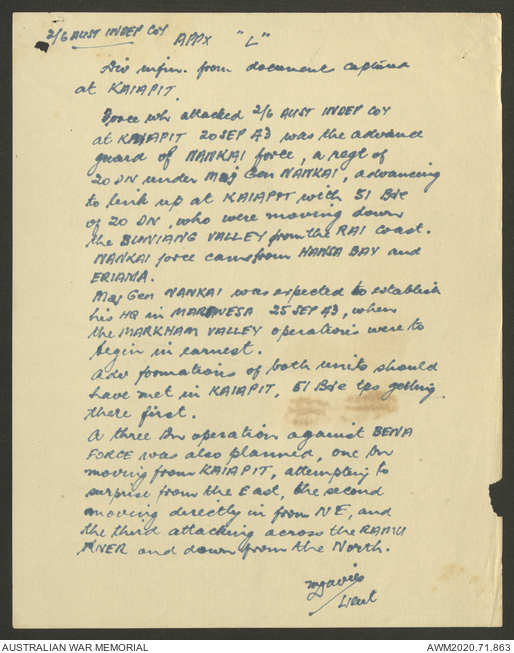 2/6 AUST INDEP COY
APPX "L"
Div infm. from document captured
at KAIAPIT.
Force wh attacked 2/6 AUST INDEP COY
at KAIAPIT 20 SEP 43 was the advance
guard of NANKAI force, a regt of
20 DN under Maj Gen NANKAI, advancing
to link up at KAIAPIT with 51 Bde
of 20 DN, who were moving down
the BUNIANG VALLEY from the RAI coast.
NANKAI force came from HANSA BAY and
ERIAMA.
Maj Gen NANKAI was expected to establish
his HQ in MARAWESA 25 SEP 43, when
the MARKHAM VALLEY operations were to
begin in earnest.
Adv formations of both units should
have met in KAIAPIT, 51 Bde tps getting
there first.
A three Bn operation against BENA
FORCE was also planned, one bn
moving from KAIAPIT, attempting to
surprise from the East, the second
moving directly in from NE, and
the third attacking across the RAMU
RIVER and down from the North.
Lieut
AUSTRALIAN WAR MEMORIAL
AWM2020.71.863